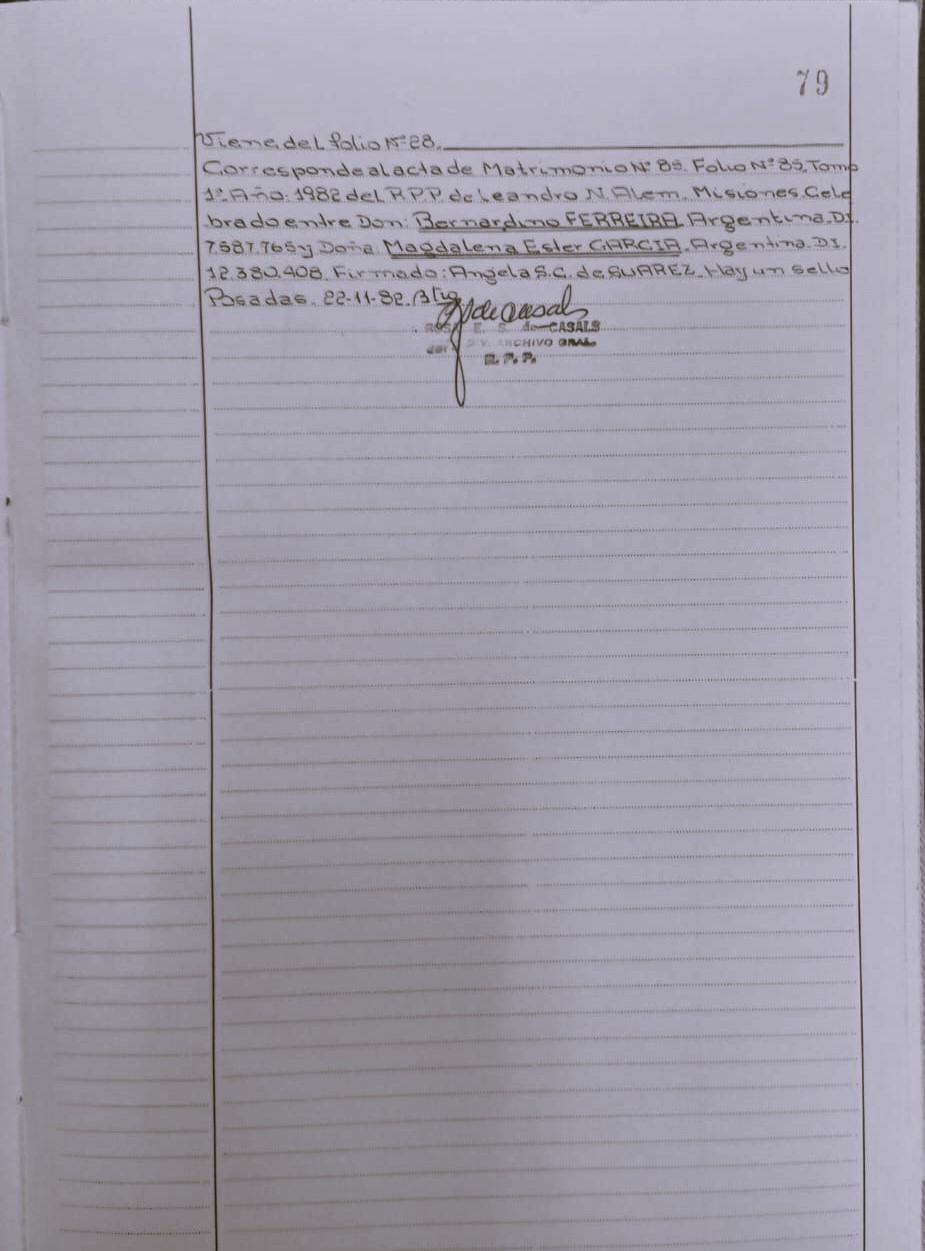 79
Viene del folio Nº 28.
Corresponde al acta de Matrimonio Nº 85. Folio Nº 85. Tomo
1º Año: 1982 del R.P.P. de Leandro N. Alem. Misiones. Cele
brado entre Don: Bernardino FERREIRA. Argentina. D.I.
7.587.765 y Doña Magdalena Ester GARCIA. Argentina. D.I.
12.380.408. Firmado: Angela S.C. de SUAREZ. Hay un sello
Posadas. 22-11-82.
E. S. de CASALS
ARCHIVO GRAL.
R. P. P.